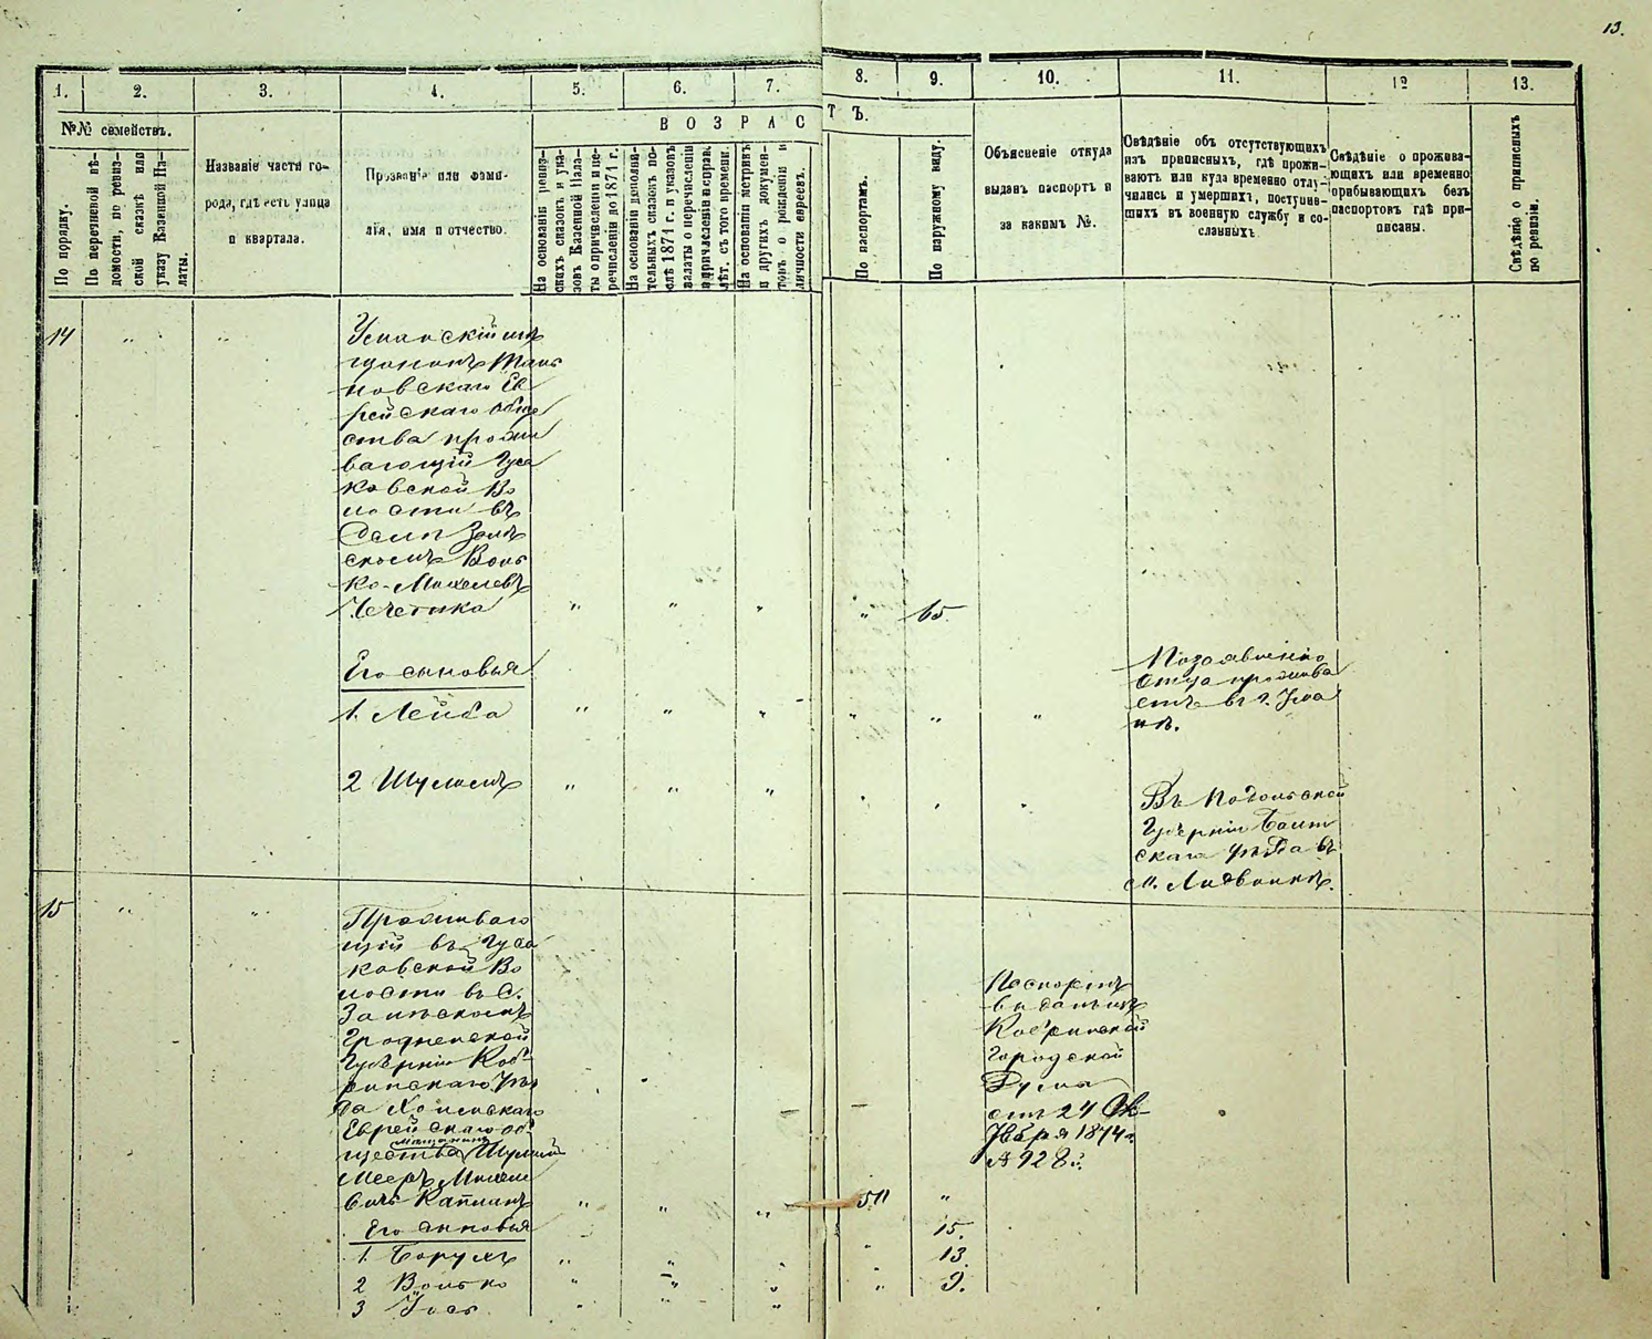 13.
1. 2. 3. 4. 5. 6. 7. 8. 9. 10. 11. 12 13.
№№ семействъ.
В О З Р А С Т Ъ.
По порядку.
По перечневой вѣ-
домости, по ревиз-
ской сказкѣ или
указу Казенной Па-
латы.
Названіе части го-
рода, гдѣ есть улица
и квартала.
Прозваніе или фами-
лія, имя и отчество.
На основаніи ревиз-
скихъ сказокъ и ука-
зовъ Казенной Пала-
ты о причисленіи и пе-
речисленіи до 1871 г.
На основаніи дополни-
тельныхъ сказокъ по-
слѣ 1871 г. и указовъ
палаты о перечисленіи
и причисленіи и справ.
лѣт. съ того времени.
На основаніи метрикъ
и другихъ докумен-
товъ о рожденіи и
личности евреевъ.
По паспортамъ.
По наружному виду.
Объясненіе откуда
выданъ паспортъ и
за какимъ №.
Свѣдѣніе объ отсутствующихъ
изъ приписныхъ, гдѣ прожи-
ваютъ или куда временно отлу-
чились и умершихъ, поступив-
шихъ въ военную службу и со-
сланныхъ
Свѣдѣніе о прожива-
ющихъ или временно
прибывающихъ безъ
паспортовъ гдѣ при-
писаны.
Свѣдѣніе о приписныхъ
по ревизіи.
14 " "
Уманскій мѣ
щанинъ Таль
новскаго Ев
рейскаго обще
ства прожи
вающій Гуса
ковской Во
лости въ
Селѣ Залѣ
скомъ Воль
ко-Михелевъ
Чечетка " " " " 65.
Его сыновья
1. Лейба " " " " " "
По заявленію
Отца прожива
етъ въ г. Ума
нѣ.
2 Шулимъ " " "
Въ Подольской
Губерніи Балт
скаго уѣзда въ
15 " "
Проживаю
щій въ Гуса
ковской Во
лости въ С.
Залѣскомъ
Гродненской
Губерніи Коб-
ринскаго Уѣз
да Хомскаго
Еврейскаго об-
мѣщанинъ
щества Шулим
Мееръ Михеле
вичъ Капланъ " " " 50 "
Паспортъ
выданный
Кобринской
Городской
Думы
отъ 24 Ок-
тября 1874 г.
№ 928.
Его сыновья
1. Борухъ " " 15.
2 Волько " " 13.
3 Іось " " 9.